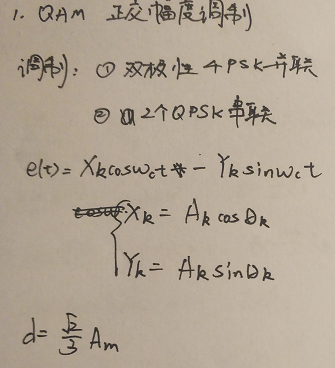 1. QAM 正交幅度调制
调制: ① 双极性 4PSK并联
② 2个QPSK串联
e(t) = Xkcoswct - Yksinwct
Xk = Ak cosθk
Yk = Ak sinθk
d = √2/3 Am